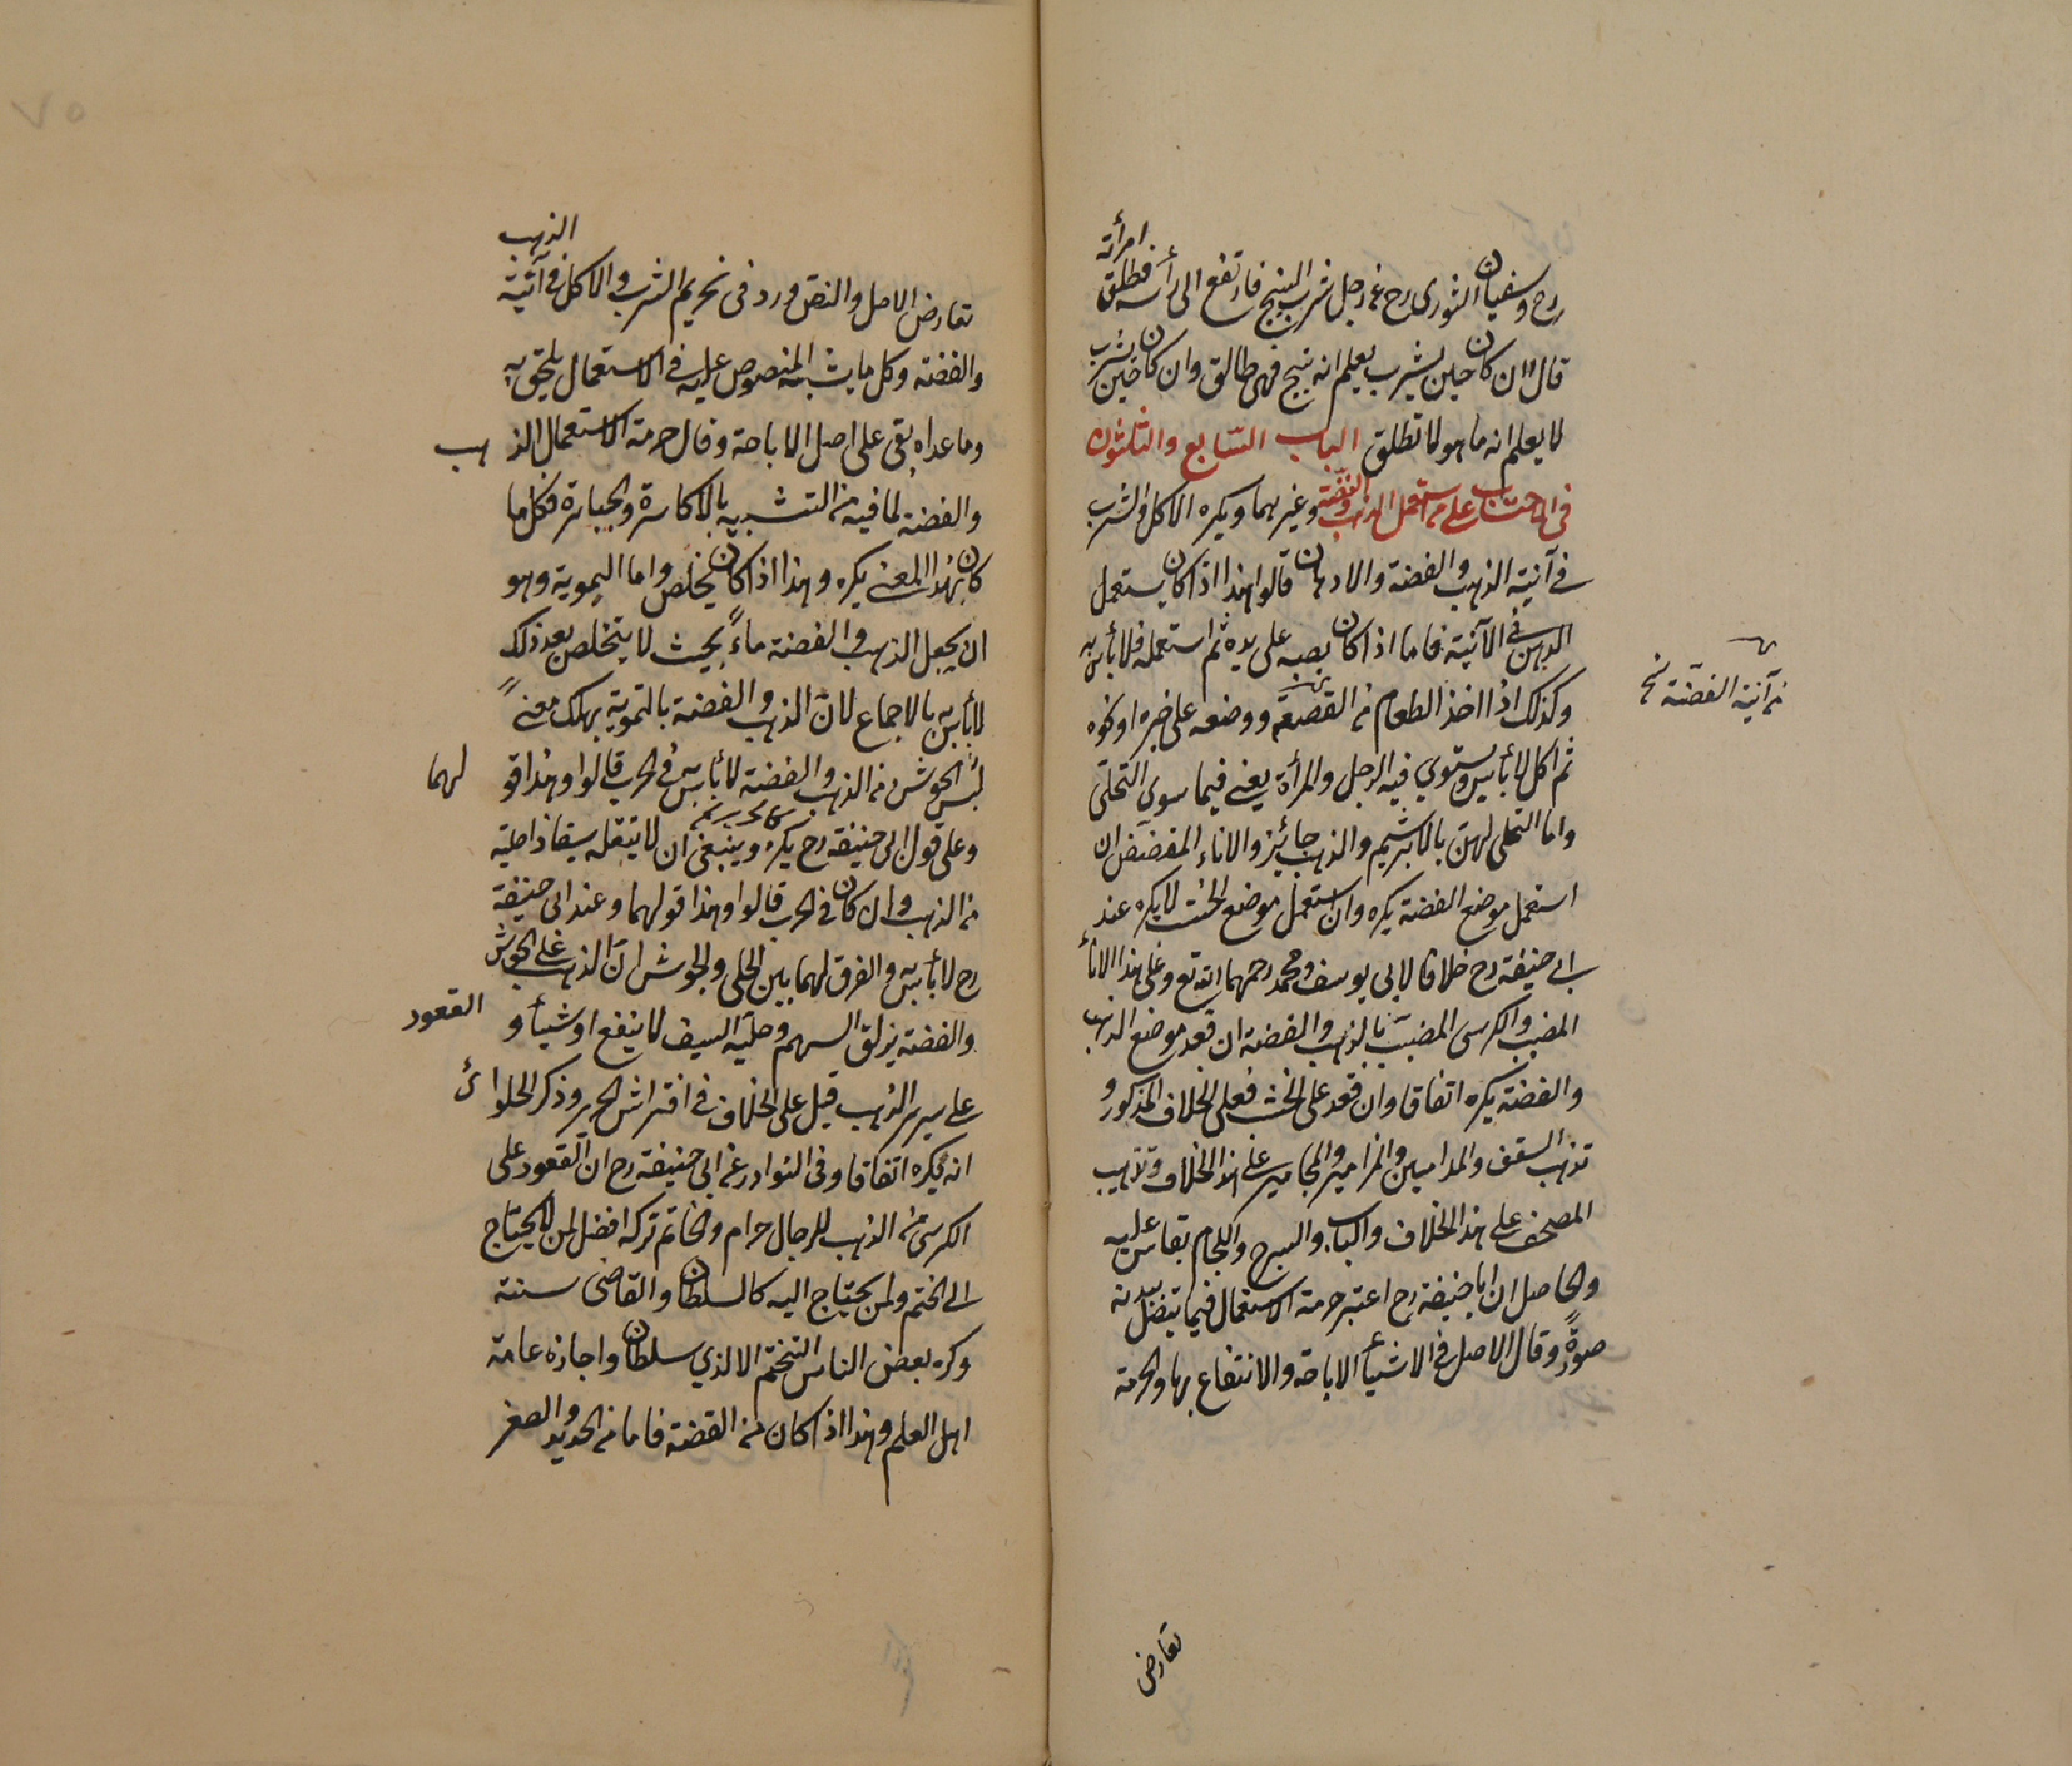 رح وسفيان الثوري رح عن رجل شرب البنج فارتفع الى رأسه فطلق امرأته
قالا ان كان حين يشرب يعلم انه بنج فهى طالق وان كان حين يشرب
لا يعلم انه ما هو لا تطلق الباب السابع والثلثون
فى الاحتساب على من استعمل الذهب والفضة وغيرهما ويكره الاكل والشرب
فى آنية الذهب والفضة والادهان قالوا هذا اذا كان يستعمل
الدهن فى الآنية فاما اذا كان يصبه على يده ثم استعمله فلا بأس به
وكذلك اذا اخذ الطعام من القصعة ووضعه على خبزه او نحوه
من آنية الفضة نخ
ثم اكل لا بأس ويستوي فيه الرجل والمرأة يعنى فيما سوى التحلى
واما التحلى لهن بالابريشم والذهب جائز والاناء المفضض ان
استعمل موضع الفضة يكره وان استعمل موضع الخشب لا يكره عند
ابى حنيفة رح خلافا لابى يوسف ومحمد رحمهما الله تع وعلى هذا الاناء
المضبب والكرسى المضبب بالذهب والفضة ان قعد موضع الذهب
والفضة يكره اتفاقا وان قعد على الخشب فعلى الخلاف المذكور و
تذهب السقف والمداميين والمزامير والمجامير على هذا الخلاف وتذهيب
المصحف على هذا الخلاف والباب والسرج واللجام يقاس عليه
والحاصل ان ابا حنيفة رح اعتبر حرمة الاستعمال فيما يتصل ببدنه
صورةً وقال الاصل فى الاشياء الاباحة والانتفاع بها والحرمة
تعارض
تعارض الاصل والنص ورد فى تحريم الشرب والاكل فى آنية الذهب
والفضة وكل ما يشبه المنصوص عليه فى الاستعمال يلحق به
وما عداه بقى على اصل الاباحة وقال حرمة الاستعمال الذهب
والفضة لما فيه من التشبيه بالاكاسرة والجبابرة فكل ما
كان بهذا المعنى يكره وهذا اذا كان يخلص واما التمويه وهو
ان يجعل الذهب والفضة ماءً بحيث لا يتخلص بعد ذلك
لا بأس به بالاجماع لان الذهب والفضة بالتمويه يهلك معنىً
لبس الجوشن من الذهب والفضة لا بأس به فى الحرب قالوا وهذا قولهما
وعلى قول ابى حنيفة رح يكره وينبغى ان لا يتقلد سيفا ذا حلية
من الذهب وان كان فى الحرب قالوا وهذا قولهما وعند ابى حنيفة
رح لا بأس به والفرق لهما بين الحلى والجوشن ان الذهب على الجوشن
والفضة يزلق السهم وحلية السيف لا ينفع او شيأ والقعود
على سرير الذهب قيل على الخلاف فى افتراش الحرير وذكر الحلوائ
انه يكره اتفاقا وفى النوادر عن ابى حنيفة رح ان القعود على
الكرسى من الذهب للرجال حرام والخاتم تركه افضل لمن لا يحتاج
الى الختم ولمن يحتاج اليه كالسلطان والقاضى سنة
وكره بعض الناس التختم الا لذي سلطان واجازه عامة
اهل العلم وهذا اذا كان من الفضة فاما من الحديد والصفر
٧٥